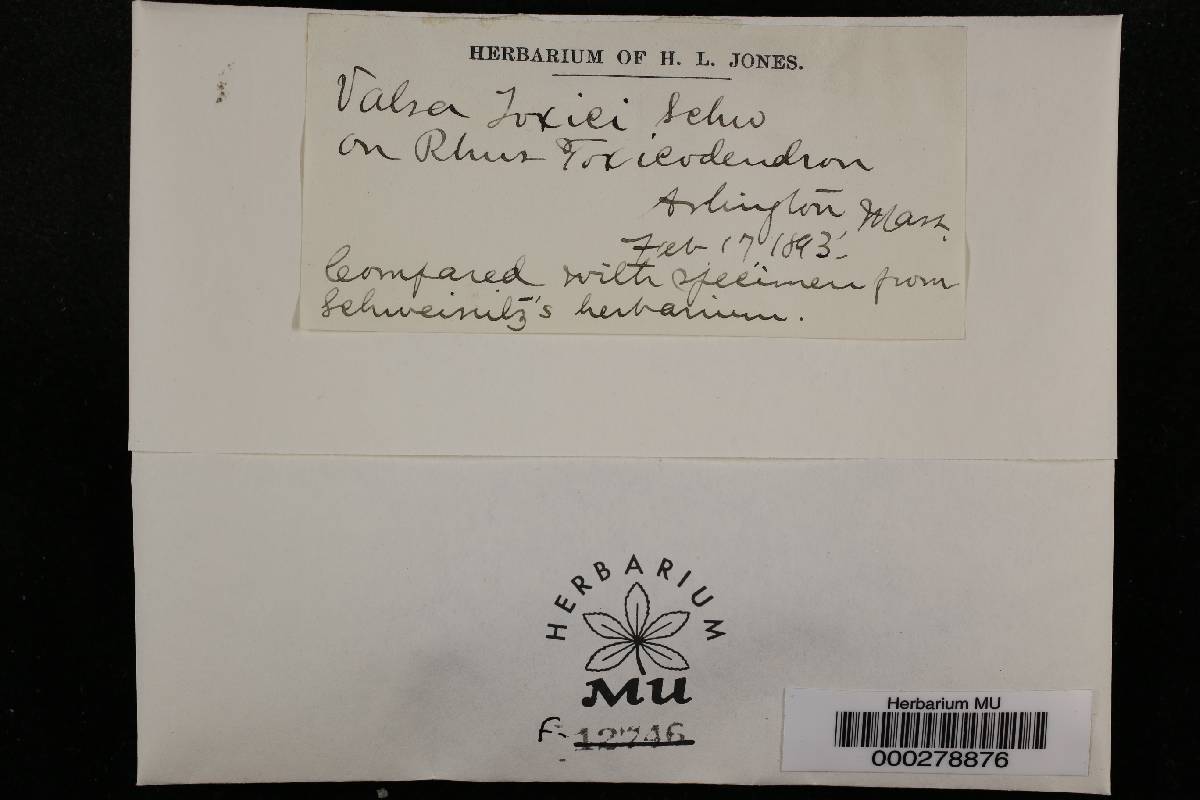 HERBARIUM OF H. L. JONES.
Valsa Toxici Schw
on Rhus Toxicodendron
Arlington Mass.
Feb 17, 1893.
Compared with specimen from
Schweinitz's herbarium.
HERBARIUM
MU
F- 12746
Herbarium MU
000278876